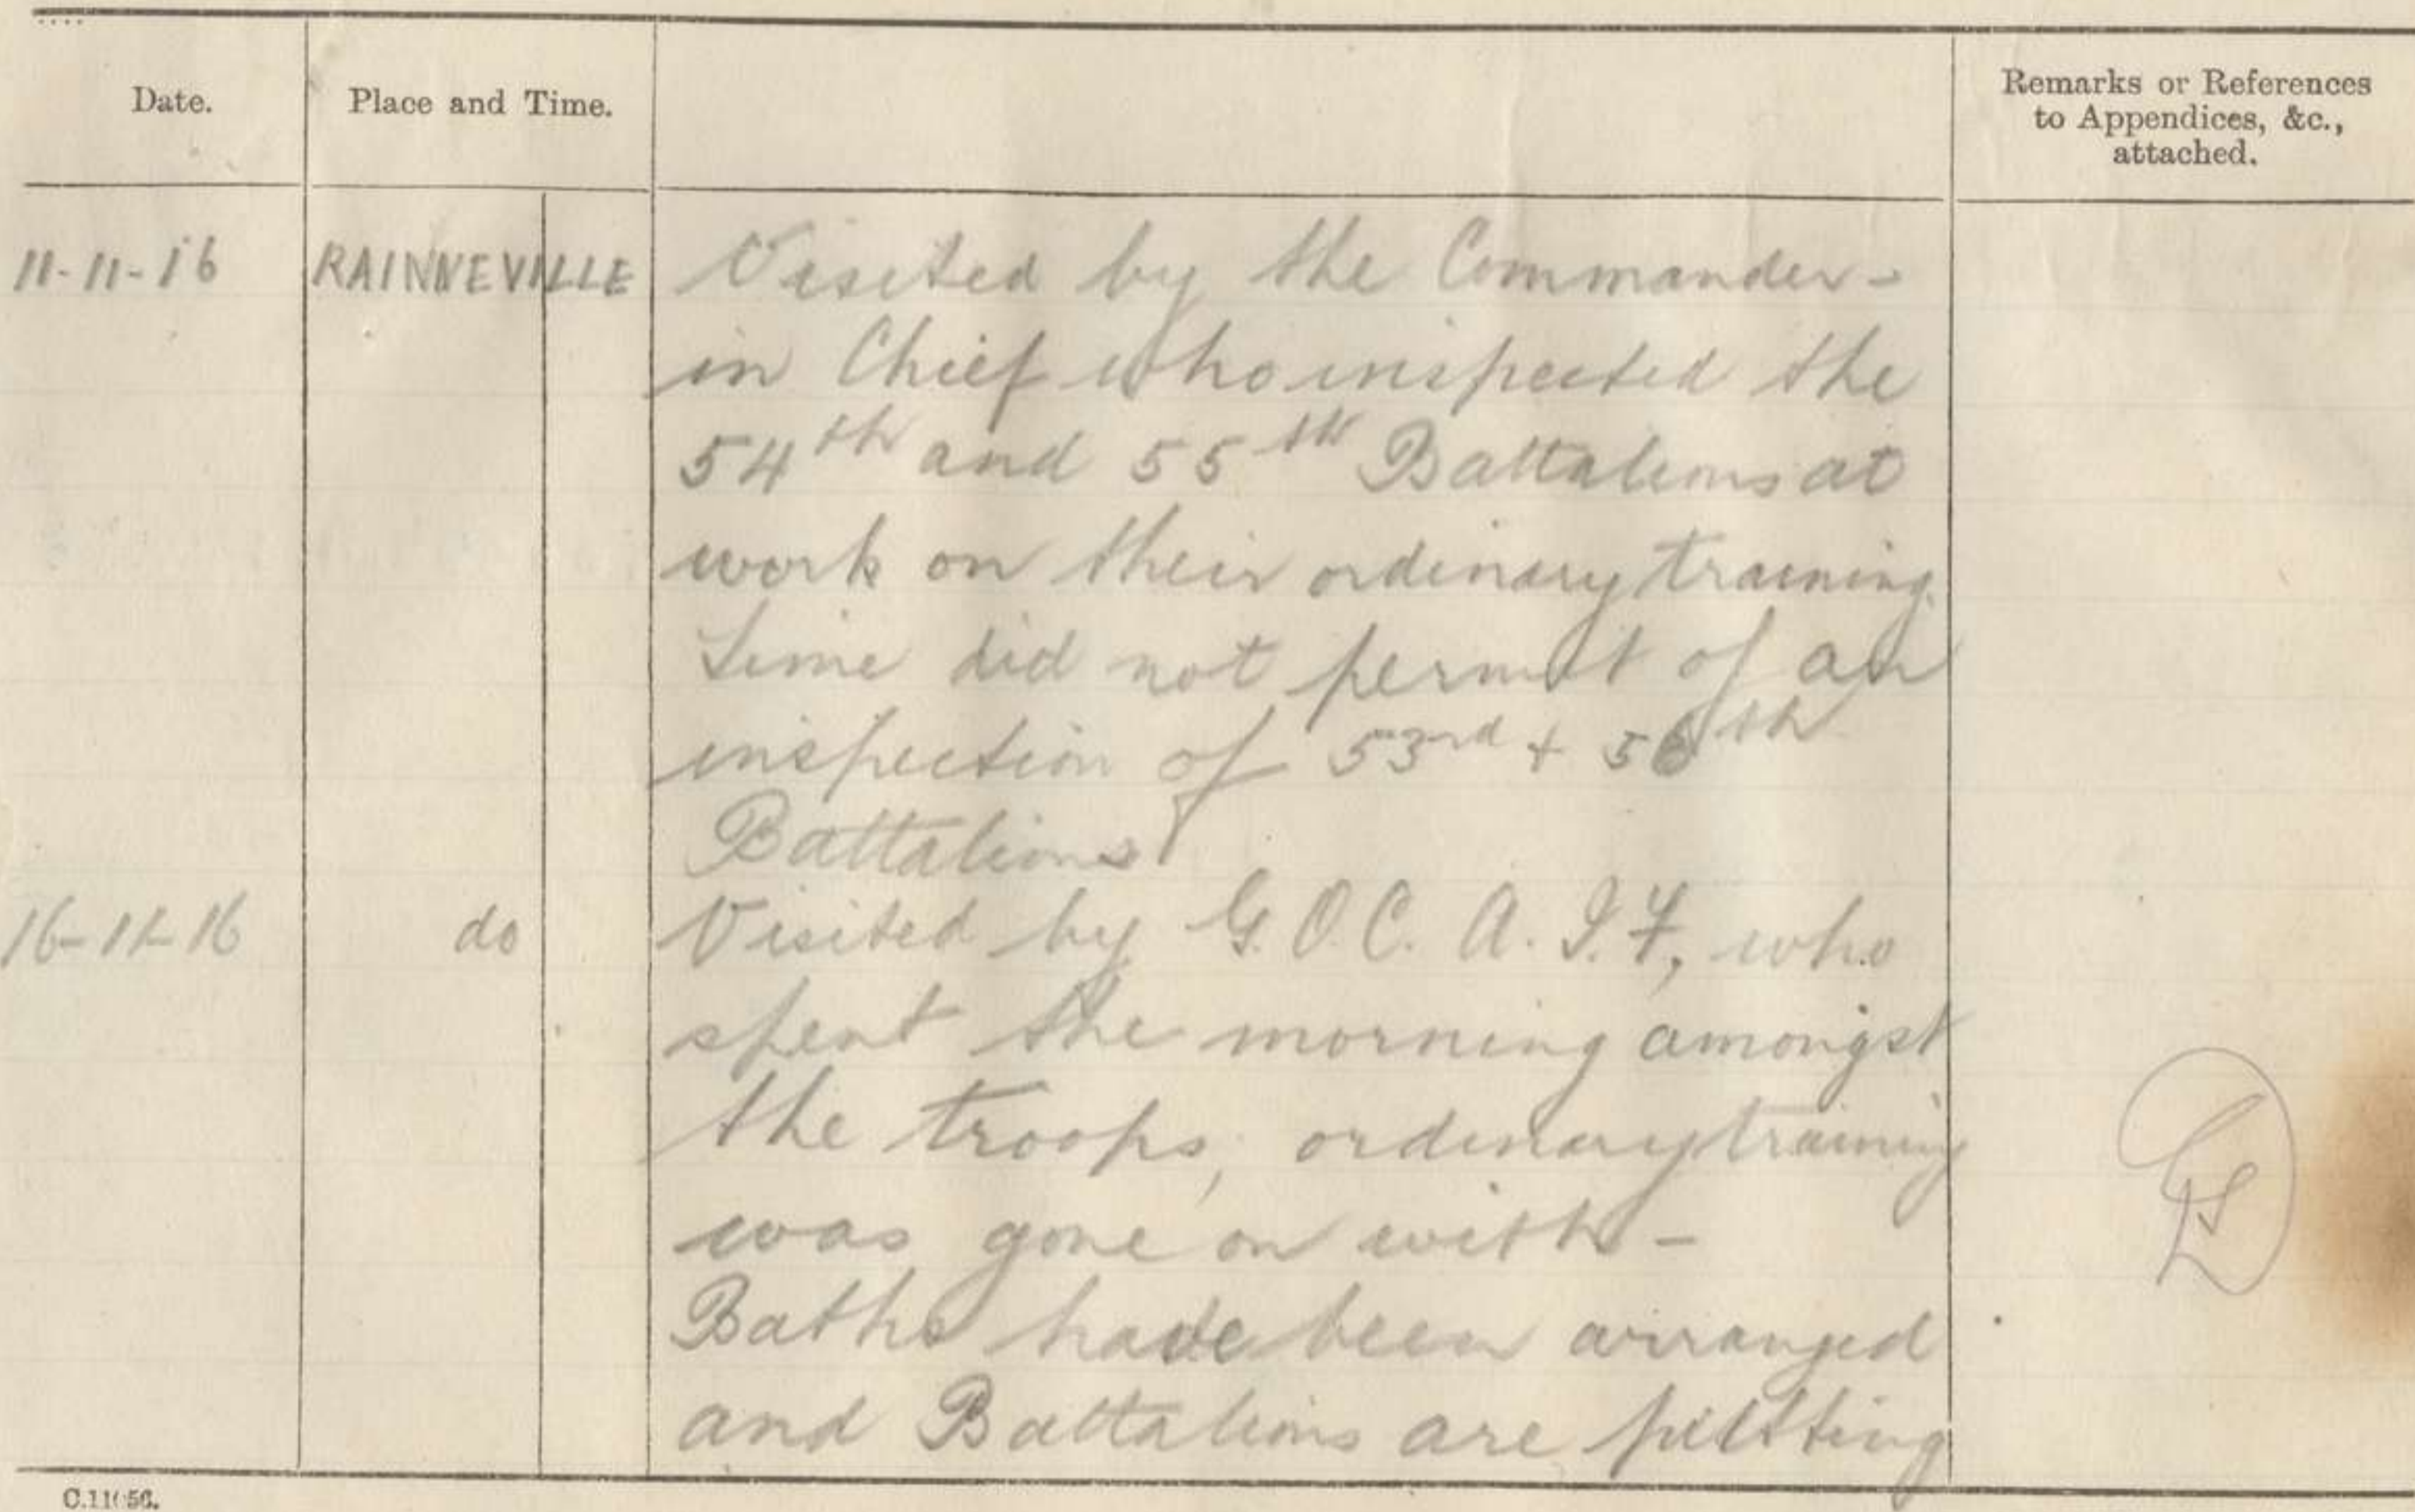 Date.
Place and Time.
Remarks or References
to Appendices, &c.,
attached.
11-11-16 RAINNEVILLE Visited by the Commander-
in Chief who inspected the
54th and 55th Battalions at
work on their ordinary training.
Time did not permit of an
inspection of 53rd + 56th
Battalions
16-11-16 do Visited by G.O.C. A.I.F, who
spent the morning amongst
the troops, ordinary training
was gone on with -
Baths have been arranged
and Battalions are putting
C.11056.